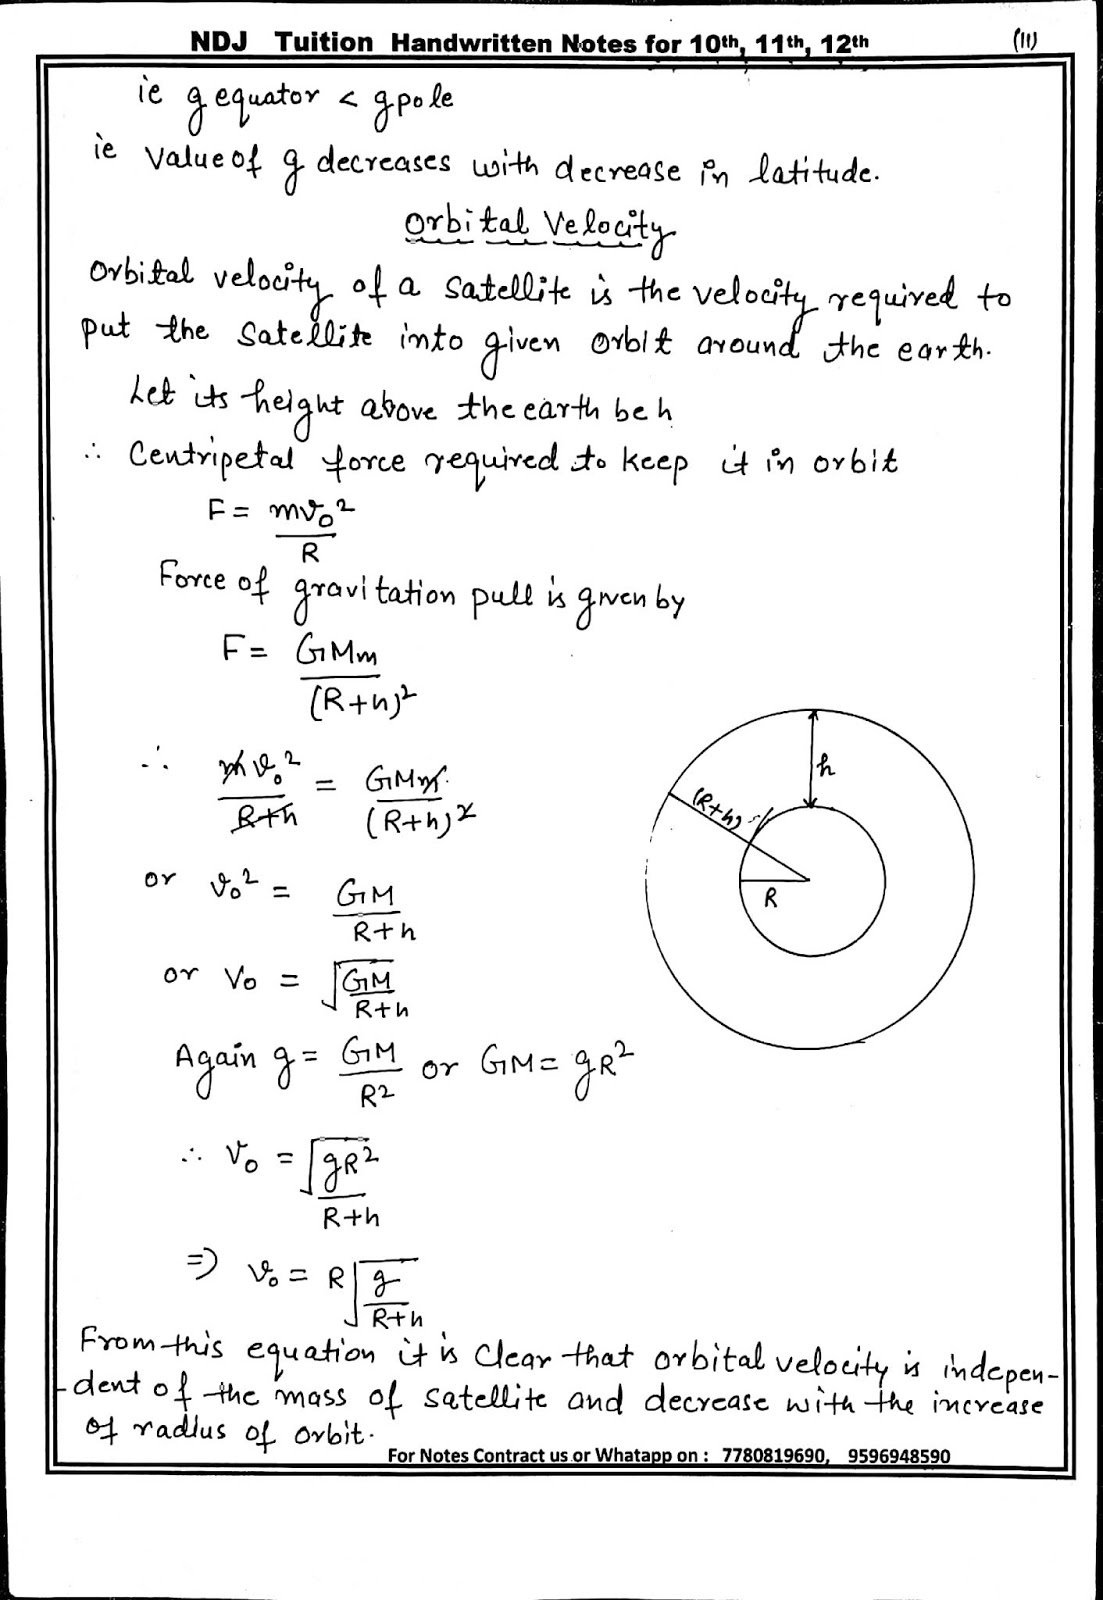 NDJ Tuition Handwritten Notes for 10th, 11th, 12th
(11)
ie g equator < g pole
ie value of g decreases with decrease in latitude.
Orbital Velocity
Orbital velocity of a satellite is the velocity required to
put the satellite into given orbit around the earth.
Let its height above the earth be h
∴ Centripetal force required to keep it in orbit
F = mv₀²
R
Force of gravitation pull is given by
F = GMm
(R+h)²
∴ mv₀² = GMm
R+h (R+h)²
or v₀² = GM
R+h
or V₀ = √GM
R+h
Again g = GM or GM = gR²
R²
∴ V₀ = √gR²
R+h
⇒ v₀ = R√g
R+h
h
(R+h)
R
From this equation it is clear that orbital velocity is indepen-
-dent of the mass of satellite and decrease with the increase
of radius of orbit.
For Notes Contract us or Whatapp on : 7780819690, 9596948590